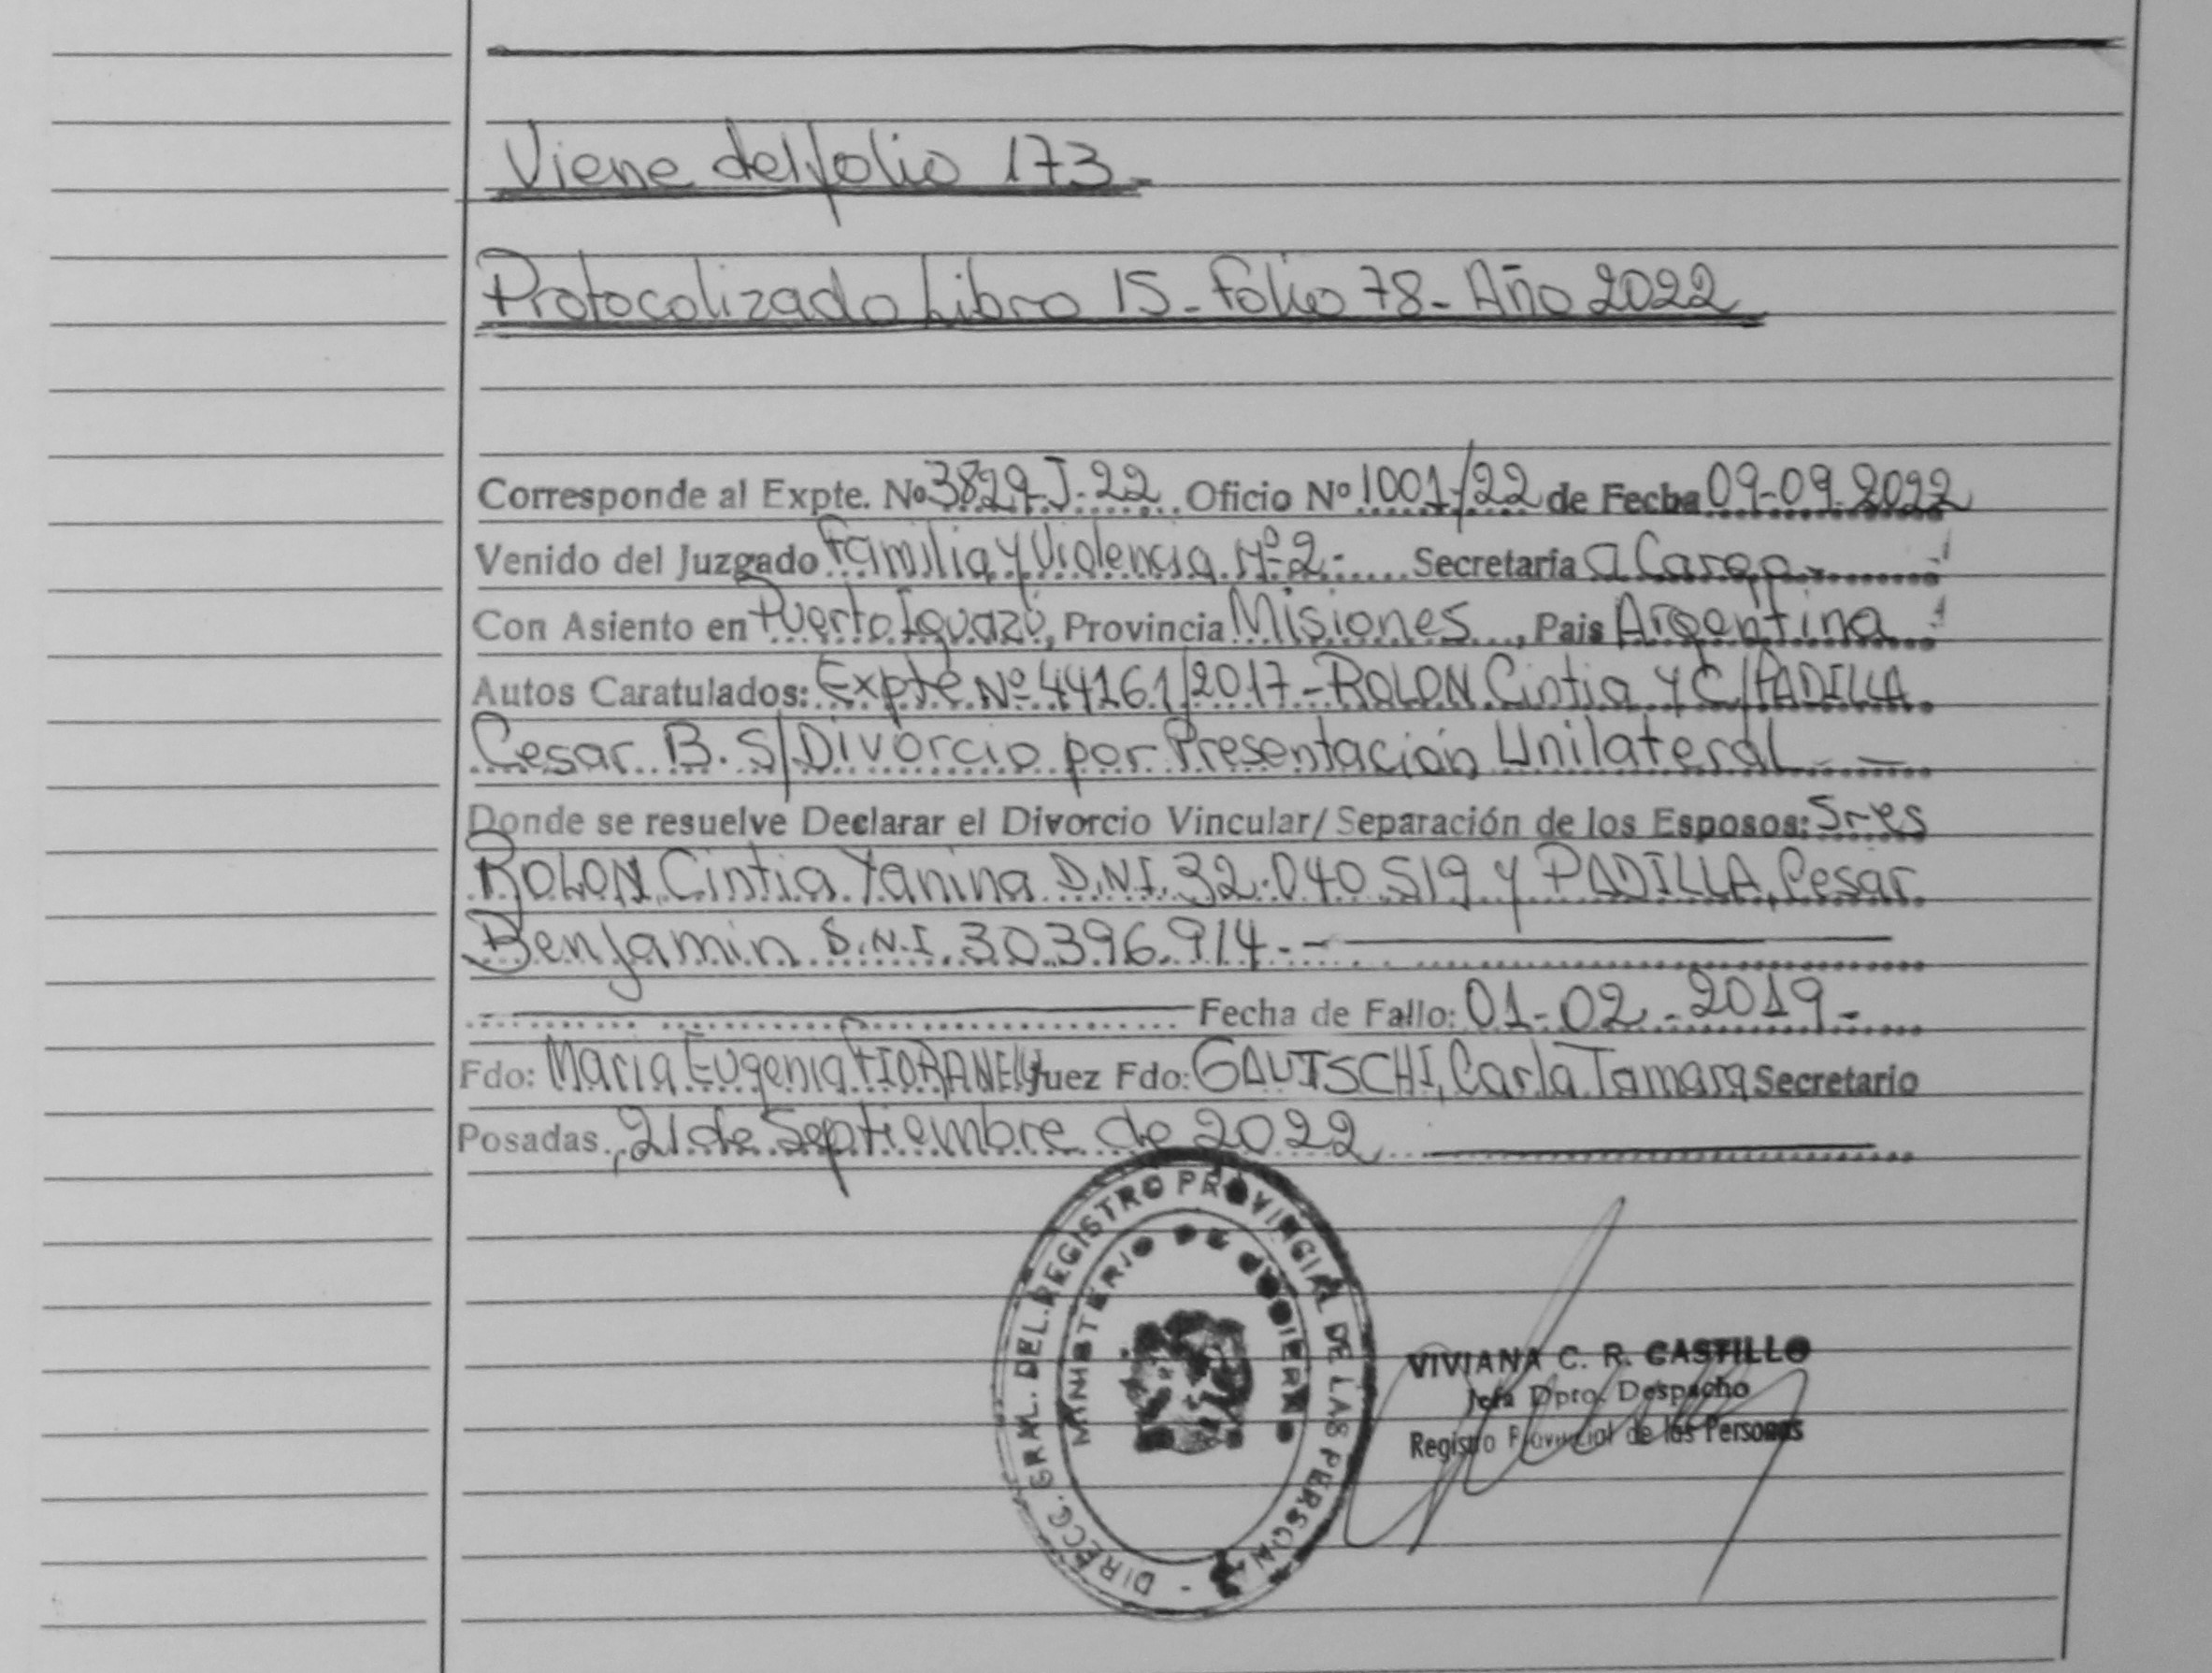 Viene del folio 173-
Protocolizado Libro 15- Folio 78- Año 2022
Corresponde al Expte. No 3829-J-22 Oficio Nº 1001/22 de Fecha 09-09-2022
Venido del Juzgado Familia y Violencia Nº 2- Secretaría a Cargo-
Con Asiento en Puerto Iguazú, Provincia Misiones, Pais Argentina
Autos Caratulados: Expte Nº 44161/2017- ROLON Cintia Y C/PADILLA
Cesar B. S/Divorcio por Presentación Unilateral
Donde se resuelve Declarar el Divorcio Vincular/ Separación de los Esposos: Sres
ROLON, Cintia Yanina D.N.I. 32.040.519 y PADILLA, Cesar
Benjamin D.N.I. 30.396.914.-
Fecha de Fallo: 01-02-2019-
Fdo: Maria Eugenia Juez Fdo: GAUTSCHI, Carla Tamara Secretario
Posadas, 21 de Septiembre de 2022
DIRECC. GRAL. DEL REGISTRO PROVINCIAL DE LAS PERSONAS
MINISTERIO DE GOBIERNO
VIVIANA C. R. CASTILLO
Jefa Dpto. Despacho
Registro Provincial de las Personas